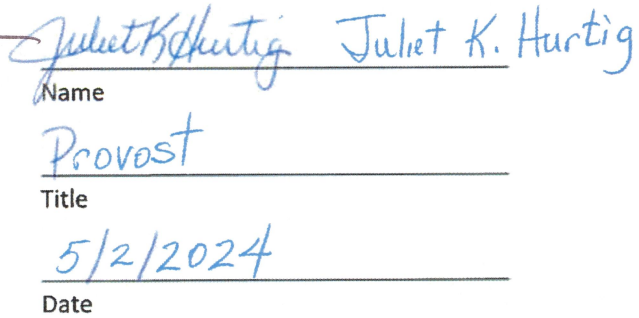 Juliet K Hurtig Juliet K. Hurtig
Name
Provost
Title
5/2/2024
Date